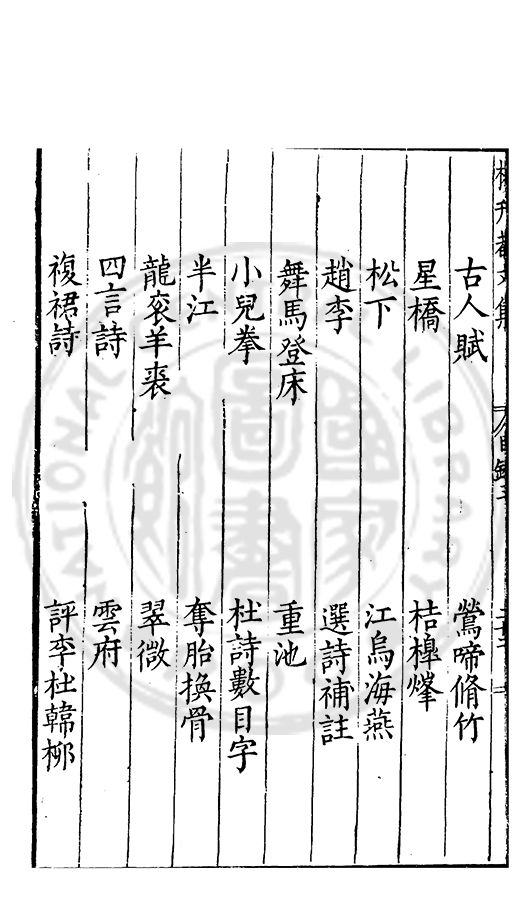 古人賦 鶯啼脩竹
星橋 桔槹㷭
松下 江烏海燕
趙李 選詩補註
舞馬登床 重池
小兒拳 杜詩數目字
半江 奪胎換骨
龍衮羊裘 翠微
四言詩 雲府
複裙詩 評李杜韓栁
NATIONAL LIBRARY
國家圖書館